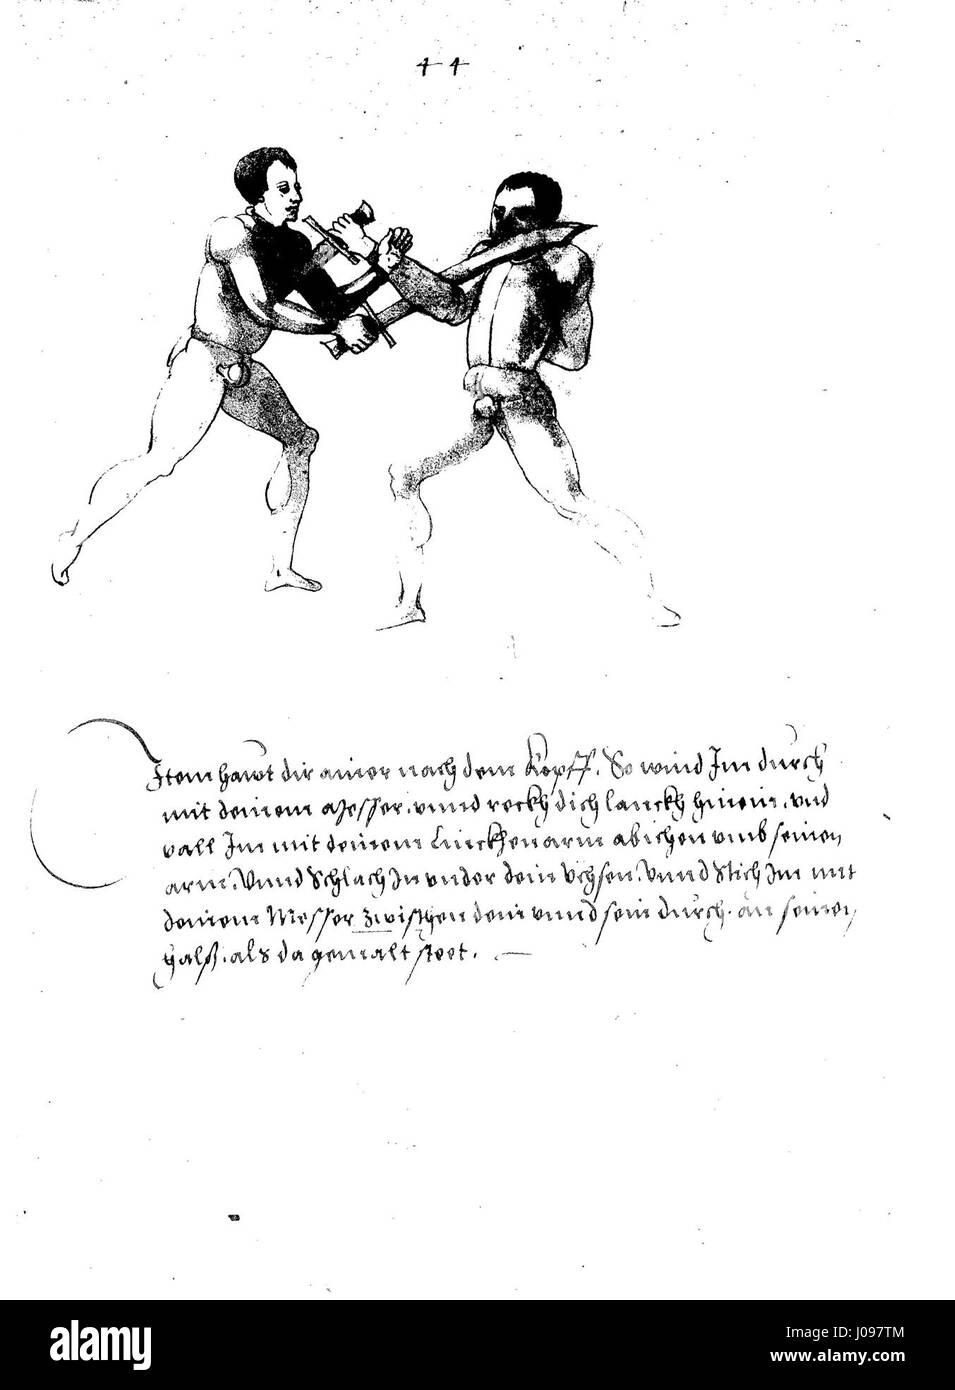 44
Item hawt dir ainer nach dem Kopff. So wind Im durch
mit deinem Messer. vnnd reckh dich lanckh hinein. vnd
vall Im mit deinem Linckhen arm abichen vmb seinen
arm. Vnnd Schlach In vnder dein Vchsen. Vnnd Stich Im mit
deinem Messer zwischen dein vnnd sein durch. an seinen
halß. als da gemalt steet.
alamy
Image ID: J097TM
www.alamy.com